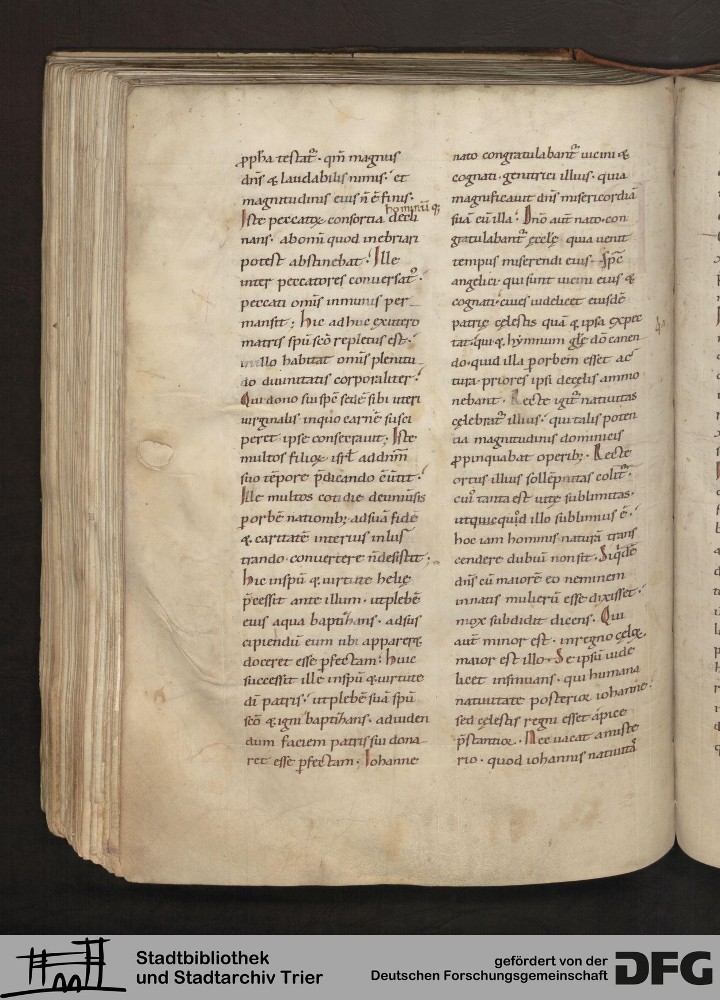 ꝓpha testat᷑· qm̅ magnus
dn̅s & laudabilis nimis·' et
magnitudinis eius n̅ e̅ finis·
hominu̅q;
Iste peccatoꝝ consortia decli
nans· abomi quod inebriari
potest abstinebat·' Ille
inter peccatores conuersat᷑·'
peccati om̅is inmunis per
mansit; hic adhuc exutero
matris sp̅u sc̅o repletus est·'
inillo habitat omis plenitu
do diuinitatis corporaliter·'
Qui dono sui sp̅c sede̅ sibi uteri
uirginalis inquo carne̅ susci
peret ipse consecrauit; Iste
multos filioꝝ isrl̅ addn̅m
suo te̅pore p̅dicando c̅uertit·'
Ille multos cotidie deuniu̅sis
ꝑorbe̅ nationib; adsua̅ fide̅
& caritate̅ interius inlus
trando· conuertere n̅desistit;
hic insp̅u & uirtute helie
p̅cessit ante illum· utplebe̅
eius aqua baptizans· adsus
cipiendu̅ eum ubi appareret
doceret esse ꝑfectam· huic
successit ille insp̅u & uirtute
di̅ patris·' utplebe̅ sua̅ sp̅u
sc̅o & igni baptizans· aduiden
dum faciem patris sui dona
ret esse ꝑfectam· Iohanne
nato congratulabant᷑ uicini &
cognati· genitrici illius· quia
magnificauit dn̅s misericordia̅
sua̅ cu̅ illa·' Dn̅o aut̅ nato· con
gratulabant᷑ ęcelę quia uenit
tempus miserendi eius· Ip̅c
angelici· qui sunt uicini eius &
cognati· ciues uidelicet eiusde̅
patrię cęlestis qua̅ & ipsa expec
tat· qui & hymnum glę do̅ canen
do· quid illa ꝑorbem esset ac
tura· priores ipsi decęlis ammo
nebant· Recte igit᷑ natiuitas
cęlebrat᷑ illius·' qui talis poten
tia magnitudinis dominicis
ꝓpinquabat operib; Recte
ortus illius solle̅pnitas colit᷑·
cui᷒ tanta est uitę sublimitas·
utquicquid illo sublimius e̅·'
hoc iam hominis natura̅ trans
cendere dubiu̅ non sit· Siquide̅
dn̅s cu̅ maiore̅ eo neminem
innatis mulieru̅ esse dixisset·'
mox subdidit dicens· Qui
aut̅ minor est· inregno cęloꝝ
maior est illo· Se ipsu̅ uide
licet insinuans· qui humana
natiuitate posterior iohanne·'
sed cęlestis regni esset apice
p̅stantior· Nec uacat amiste
rio· quod iohannis natiuita᷑
Stadtbibliothek
und Stadtarchiv Trier
gefördert von der
Deutschen Forschungsgemeinschaft
DFG